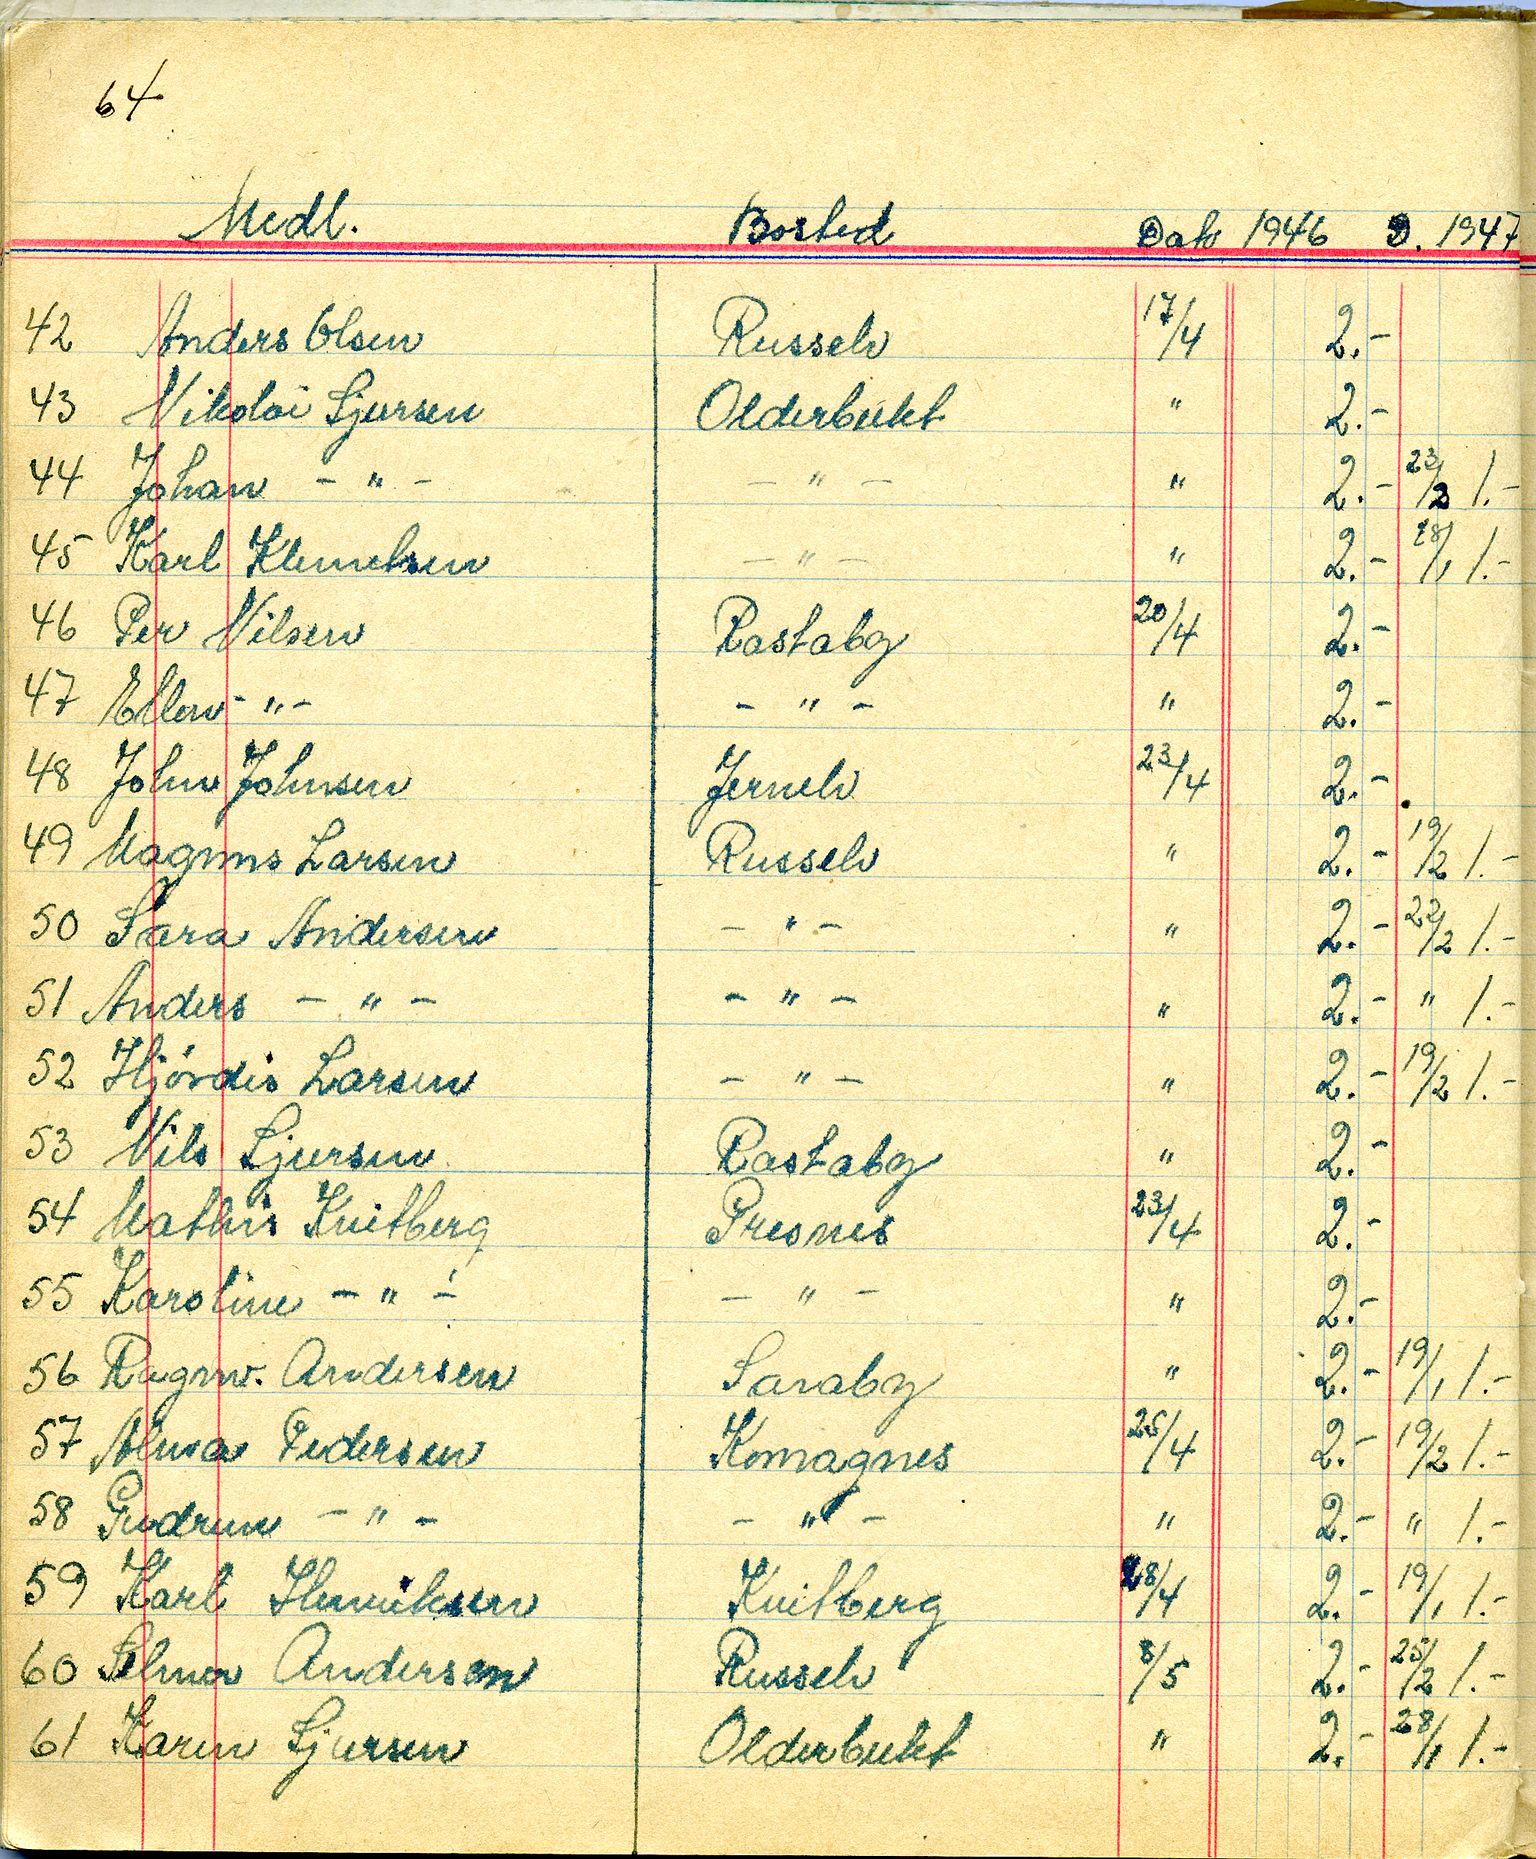 64
Medl. Bosted Dato 1946 D. 1947
42 Anders Olsen Russelv 17/4 2.-
43 Nikolai Sjursen Olderbukt " 2.-
44 Johan - " - - " - " 2.- 23/2 1.-
45 Karl Klemetsen - " - " 2.- 28/1 1.-
46 Per Nilsen Rastaby 20/4 2.-
47 Ellen - " - - " - " 2.-
48 John Johnsen Jernelv 23/4 2.-
49 Magnus Larsen Russelv " 2.- 19/2 1.-
50 Sara Andersen - " - " 2.- 22/2 1.-
51 Anders - " - - " - " 2.- " 1.-
52 Hjördis Larsen - " - " 2.- 19/2 1.-
53 Nils Sjursen Rastaby " 2.-
54 Mathis Kvitberg Presnes 23/4 2.-
55 Karoline - " - - " - " 2.-
56 Ragnv. Andersen Saraby " 2.- 19/1 1.-
57 Alma Pedersen Komagnes 25/4 2.- 19/2 1.-
58 Gudrun - " - - " - " 2.- " 1.-
59 Karl Henriksen Kvitberg 28/4 2.- 19/1 1.-
60 Selma Andersen Russelv 8/5 2.- 25/2 1.-
61 Karen Sjursen Olderbukt " 2.- 28/1 1.-